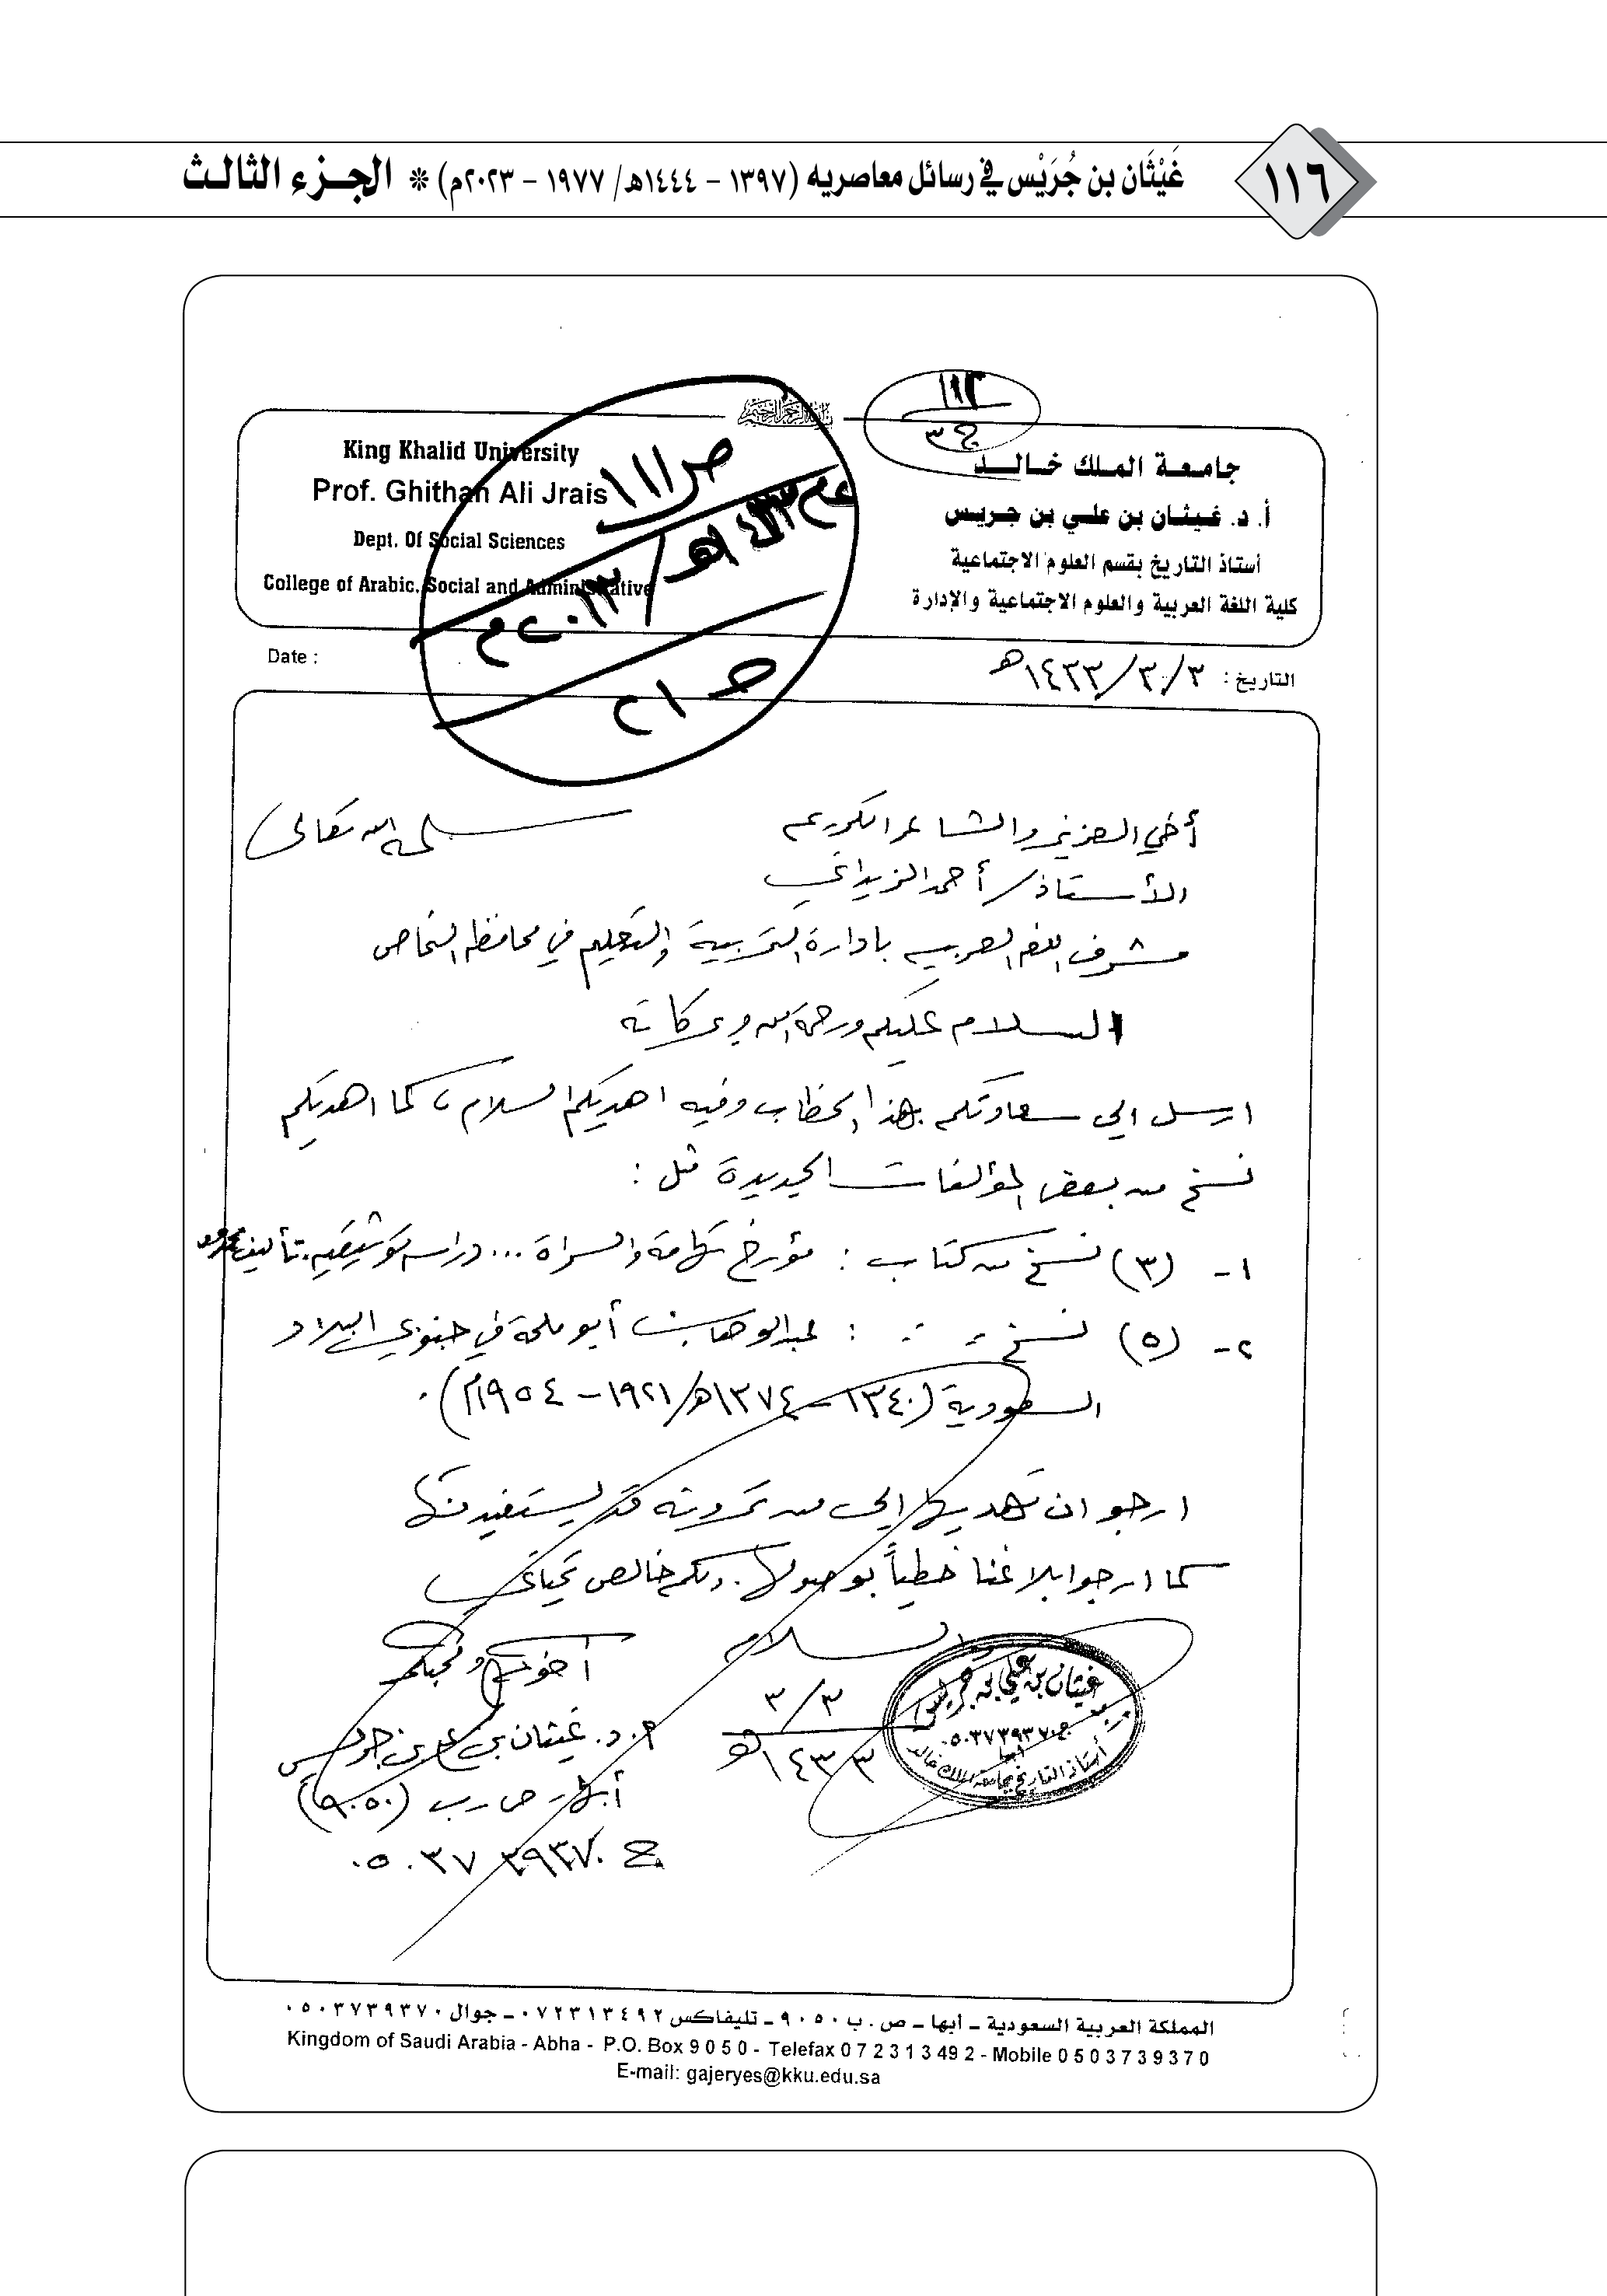 ١١٦
غَيْثَان بن جُرَيْس في رسائل معاصريه (١٣٩٧ - ١٤٤٤هـ/ ١٩٧٧ - ٢٠٢٣م) * الجزء الثالث
King Khalid University
Prof. Ghithan Ali Jrais
Dept. Of Social Sciences
College of Arabic. Social and Administrative
جامعة الملك خالد
أ. د. غيثان بن علي بن جريس
أستاذ التاريخ بقسم العلوم الاجتماعية
كلية اللغة العربية والعلوم الاجتماعية والإدارة
ص ١١١
عام ١٤٣٣هـ / ٢٠١٢م
Date :
التاريخ : ٣/٣/١٤٣٣هـ
أخي العزيز والشاعر الكريم سلمه الله تعالى
الأستاذ/ أحمد الزيداني
مشرف اللغة العربية بادارة التربية والتعليم في محافظة النماص
السلام عليكم ورحمة الله وبركاته
ارسل الى سعادتكم بهذا الخطاب وفيه اهديكم السلام، كما اهديكم
نسخ من بعض المؤلفات الجديدة مثل :
١- (٣) نسخ من كتاب : مؤرخ تهامة والسراة ... دراسة توثيقية. تأليف
٢- (٥) نسخ : عبدالوهاب أبو ملحة في جنوبي البلاد
السعودية (١٣٤٠ - ١٣٧٤هـ/ ١٩٢١ - ١٩٥٤م).
ارجو ان تهديها إلى من ترونه قد يستفيد منها
كما ارجو ابلاغنا خطياً بوصولها. ولكم خالص تحياتي
والسلام
أخوكم ومحبكم
أ. د. غيثان بن علي بن جريس
أبها - ص. ب (٩٠٥٠)
ج ٠٥٠٣٧٣٩٣٧٠
٣/٣
١٤٣٣هـ
غيثان بن علي بن جريس
ج ٠٥٠٣٧٣٩٣٧٠
أبها
أستاذ التاريخ بجامعة الملك خالد
المملكة العربية السعودية ـ أبها ـ ص . ب ٩٠٥٠ ـ تليفاكس ٠٧٢٣١٣٤٩٢ ـ جوال ٠٥٠٣٧٣٩٣٧٠
Kingdom of Saudi Arabia - Abha - P.O. Box 9 0 5 0 - Telefax 0 7 2 3 1 3 49 2 - Mobile 0 5 0 3 7 3 9 3 7 0
E-mail: gajeryes@kku.edu.sa